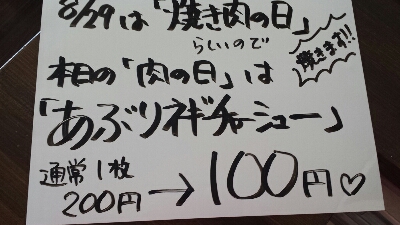 8/29は「焼き肉の日」
らしいので
焼きます!!
本日の「肉の日」は
「あぶりネギチャーシュー」
通常1枚
200円→100円♡